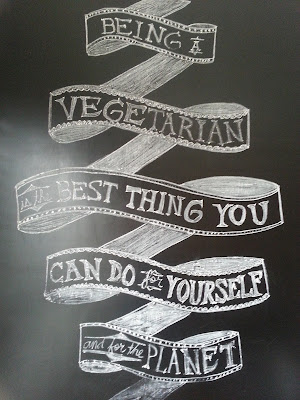 BEING A
VEGETARYAN
is the BEST THING YOU
CAN DO for YOURSELF
and for the PLANET